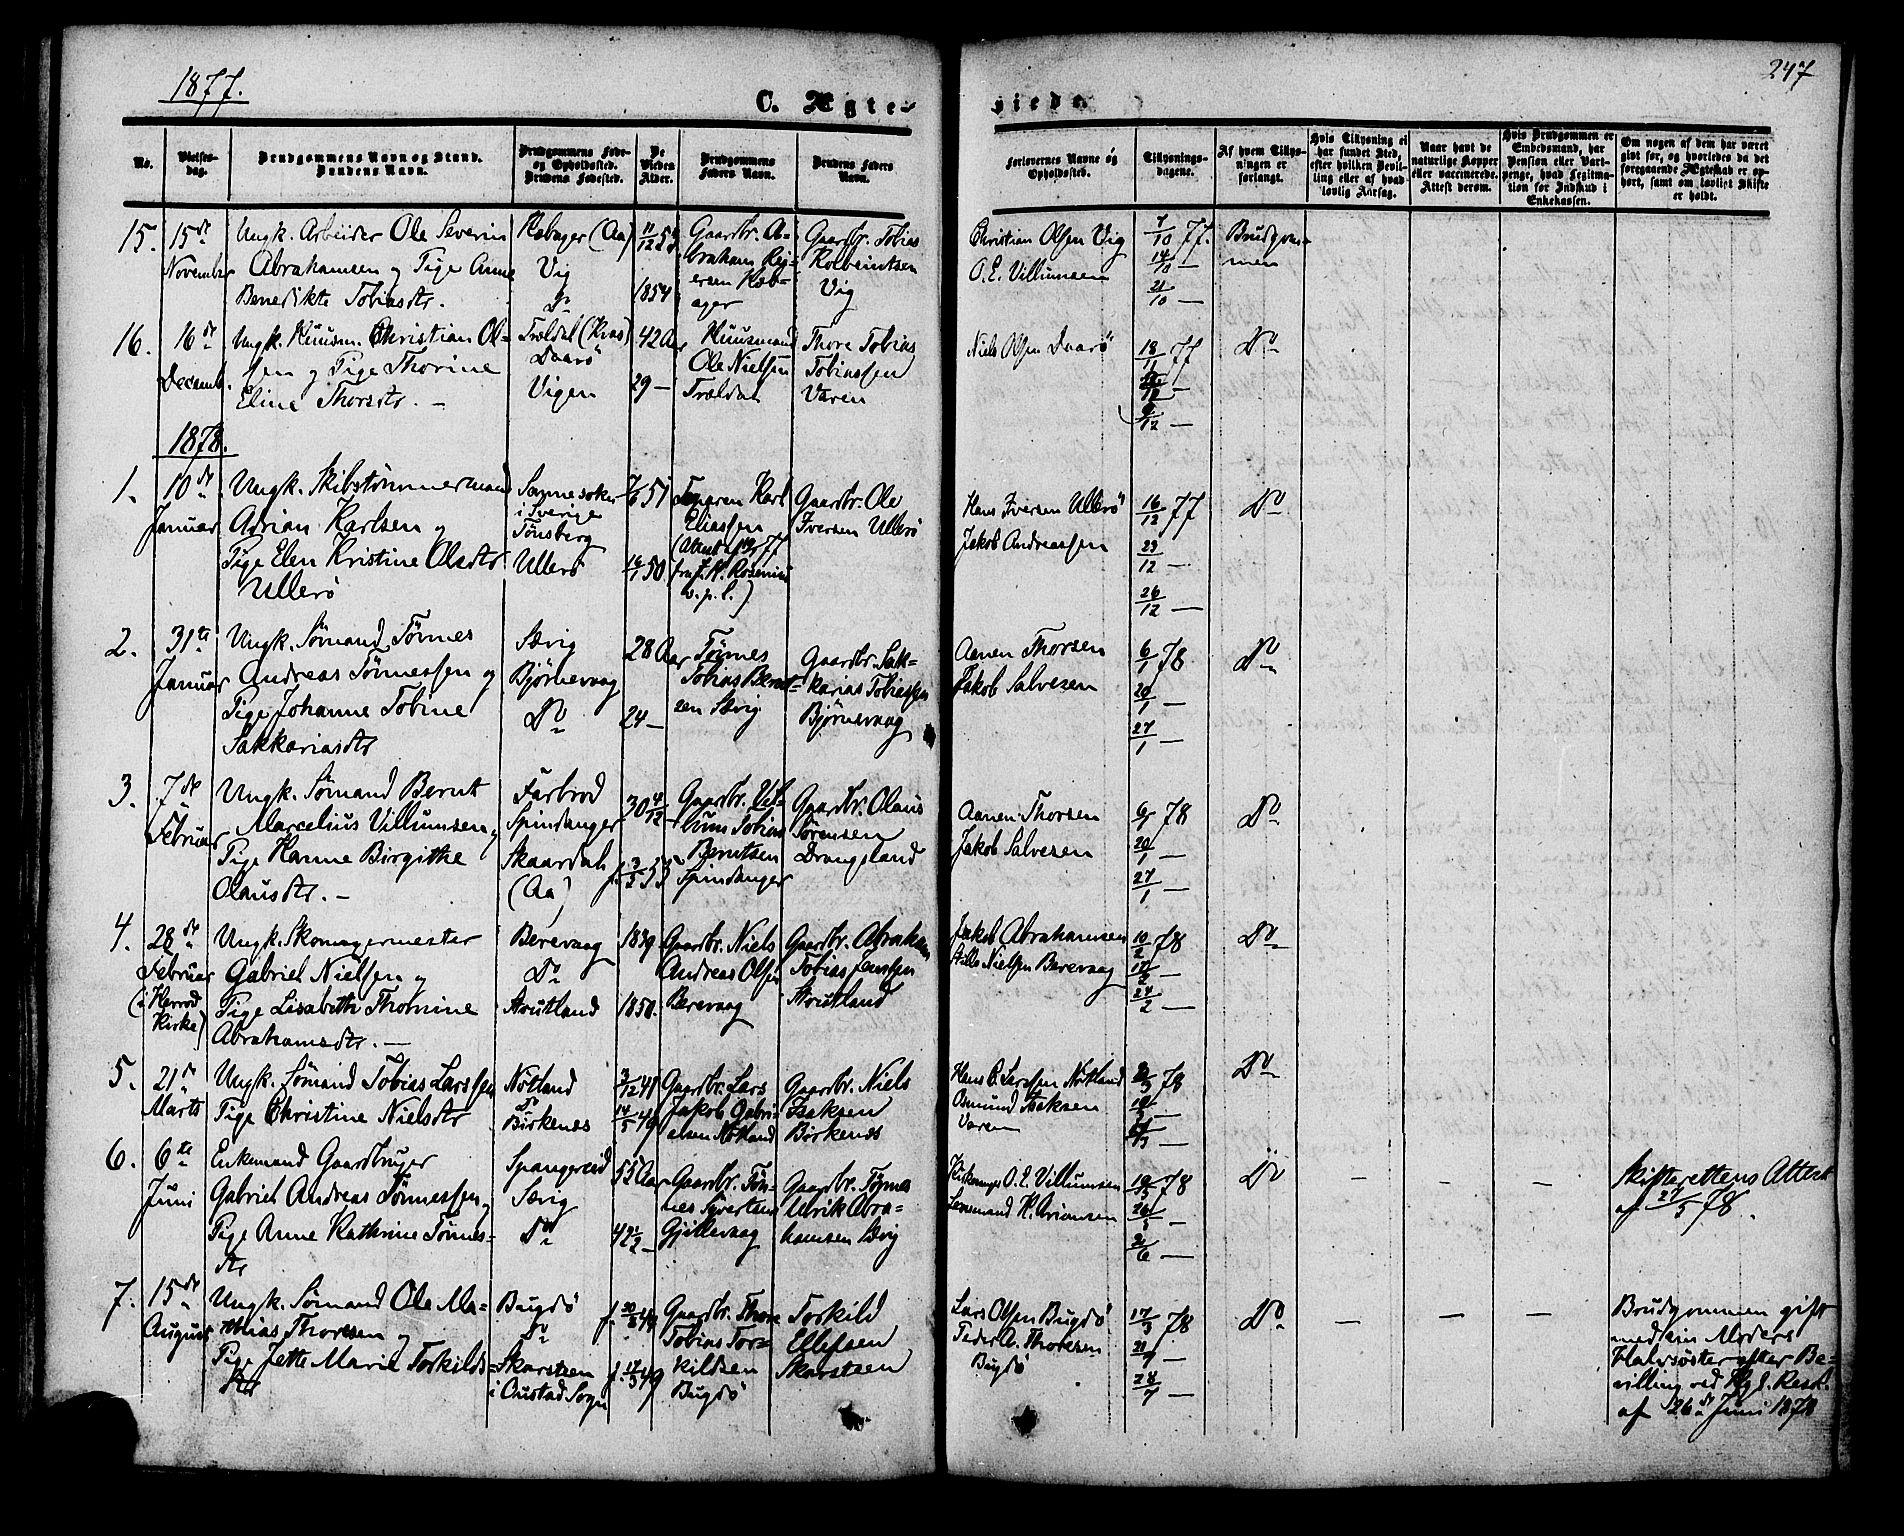 1877.
C. Ægte-
viede.
247
No.
Vielses-
dag.
Brudgommens Navn og Stand.
Brudens Navn.
Brudgommens Føde-
og Opholdssted.
Brudens Fødested.
De
Viedes
Alder.
Brudgommens
Faders Navn.
Brudens Faders
Navn.
Forlovernes Navne og
Opholdssted.
Tillysnings-
dagene.
Af hvem Tillys-
ningen er
forlangt.
Hvis Tillysning ei
har fundet Sted,
efter hvilken Bevil-
ling eller af hvad
lovlig Aarsag.
Naar havt de
naturlige Kopper
eller vaccinerede.
Attest derom.
Hvis Brudgommen er
Embedsmand, har
Pension eller Vart-
penge, hvad Legitima-
tion for Indskud i
Enkekassen.
Om nogen af dem har været
gift før, og hvorledes da det
foregaaende Ægteskab er op-
hørt, samt om lovligt Skifte
er holdt.
15.
15de
November
Ungk. Arbeider Ole Severin
Abrahamsen og Pige Anne
Benedikte Tobiasdtr.
(Aa)
Vig
Do
11/12
1854
Gaardbr. A-
braham Rei-
ersen
ager
Gaardbr. Tobias
Kolbeintsen
Vig
Christian Olsen Vig
O. E. Villumsen
7/10 77.
14/10 —
21/10 —
Brudgom-
men
16.
16de
Decemb.
Ungk. Huusm. Christian Ol-
sen og Pige Thorine
Eline Thorsdtr. —
Trældal
Daarø
Vigen
42 Aar
29 —
Huusmand
Ole Nielsen
Trældal
Thore Tobias
Tobiassen
Varen
Niels Olsen Daarø
77
Do
1878.
1.
10de
Januar
Ungk. Skibstømmermand
Adrian Karlsen og
Pige Elen Kristine Olsdtr
Ullerø
i Sverige
Tønsberg
Ullerø
51
50
Karl
Eliassen
Gaardbr. Ole
Iversen Ullerø
Hans Iversen Ullerø
Jakob Andreassen
16/12 77
23/12 —
26/12 —
Do
2.
31te
Januar
Ungk. Sømand Tønnes
Andreas Tønnessen og
Pige Johanne Tobine
Sakkariasdtr
Sævig
Bjørnevaag
Do
28 Aar
24 —
Tønnes
Tobias Bernt-
zen Sævig
Gaardbr. Sak-
karias Tobiassen
Bjørnevaag
Aanen Thorsen
Jakob Salvesen
6/1 78
20/1 —
27/1 —
Do
3.
7de
Februar
Ungk. Sømand Bernt
Marcelius Villumsen og
Pige Hanne Birgithe
Olausdtr. —
Farbrod
Spindanger
Skaardal
(Aa)
30 4/12
53
Gaardbr. Vil-
lum Tobias
Berntsen
Spindanger
Gaardbr. Olaus
Sørensen
Drangeland
Aanen Thorsen
Jakob Salvesen
6/1 78
20/1 —
27/1 —
Do
4.
28de
Februar
(i Herred
Kirke)
Ungk. Skomagermester
Gabriel Nielsen og
Pige Lisabeth Thomine
Abrahamsdtr. —
Berevaag
Do
Strutland
1839
1850.
Gaardbr. Niels
Andreas Olsen
Berevaag
Gaardbr. Abraham
Tobias Jensen
Strutland
Jakob Abrahamsen
Nielsen Berevaag
10/2 78
17/2 —
24/2 —
Do
5.
21de
Marts
Ungk. Sømand Tobias Larssen
Pige Christine Nielsdtr
Nøtland
Do
Birkenes
Gaardbr. Lars
Jakob Gabri-
elsen Nøtland
Gaardbr. Niels
Isaksen
Birkenes
Hans C. Larssen Nøtland
Osmund Isaksen
Varen
78
Do
6.
6te
Juni
Enkemand Gaardbruger
Gabriel Andreas Tønnessen og
Pige Anne Kathrine Tønnes-
dtr
Spangereid
Sævig
Do
55 Aar
42 1/2 —
Gaardbr. Tøn-
nes Syvertsen
Gjillevaag
Gaardbr. Tønnes
Ulrik Abra-
hamsen Sævig
Kirkesanger O. E. Villumsen
Lensmand H. Arionsen
19/5 78
26/5 —
2/6 —
Do
Skifterettens Attest
af 27/5 78.
7.
15de
August
Ungk. Sømand Ole Ma-
thias Thorsen og
Pige Jette Marie Torkilds-
dtr
Bugdø
Do
Skarsteen
i Austad Sogn
49
Gaardbr. Thore
Tobias Tor-
kildsen
Bugdø
Torkild
Ellefsen
Skarsteen
Lars Olsen Bugdø
Peder A. Thorsen
Bugdø
78
21/7 —
28/7 —
Do
Brudgommen gift
med sin Moders
Halvsøster efter Be-
villing ved Kgl. Resk.
af 26de Juni 1878